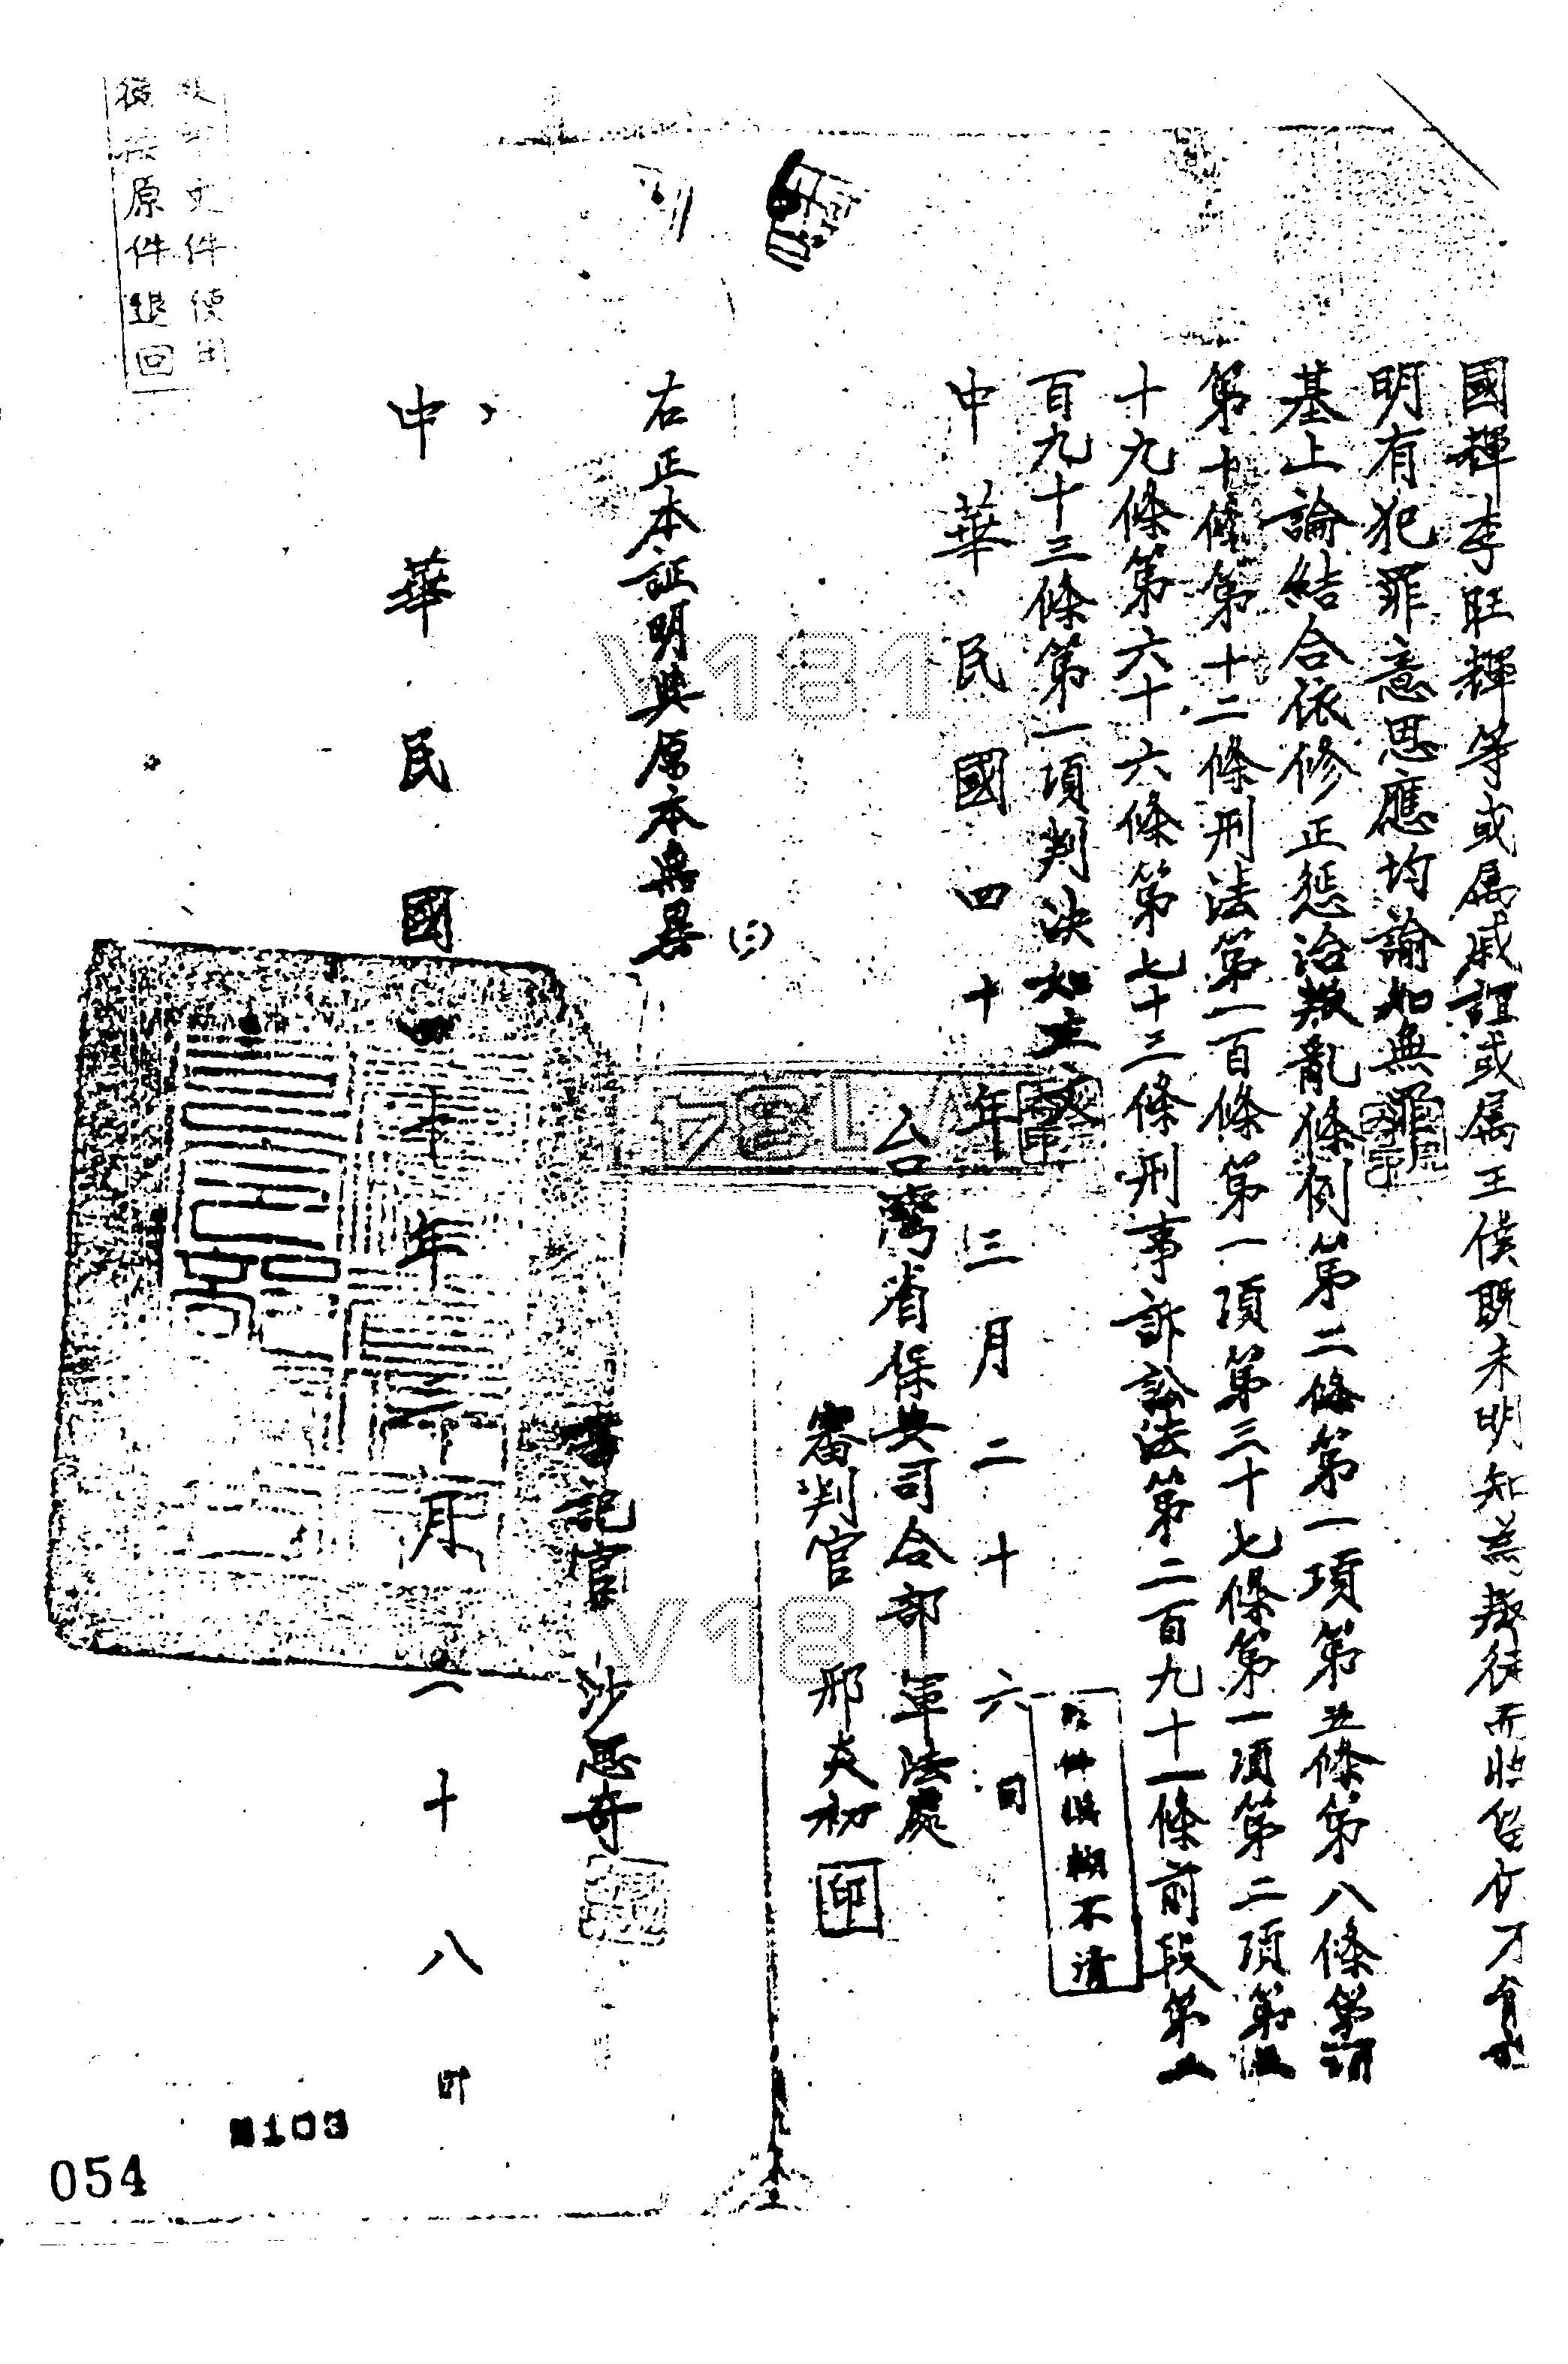 國輝李旺輝等或属戚誼或属主僕既未明知為叛徒而收留何才
明有犯罪意思應均諭知無罪
基上論結合依修正惩治叛亂條例第二條第一項第五條第八條第
第十條第十二條刑法第一百條第一項第三十七條第一項第二項第
十九條第六十六條第七十三條刑事訴訟法第二百九十一條前段第
百九十三條第一項判決如主文
中華民國四十年三月二十六日
台灣省保安司令部軍法處
審判官 邢炎初 印
原件模糊不清
右正本証明與原本無異
書記官 沙思奇
中華民國四十年 月二十八
文件使用
後 原件退回
V181
V184
V181
103
054